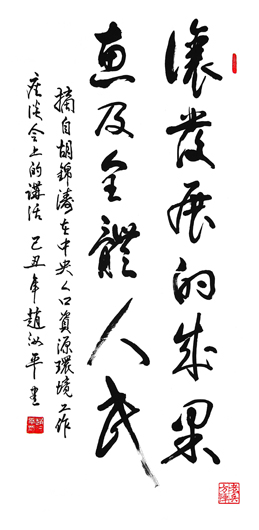 讓發展的成果
惠及全體人民
摘自胡錦濤在中央人口資源環境工作
座談会上的講话 己丑年趙汝平書